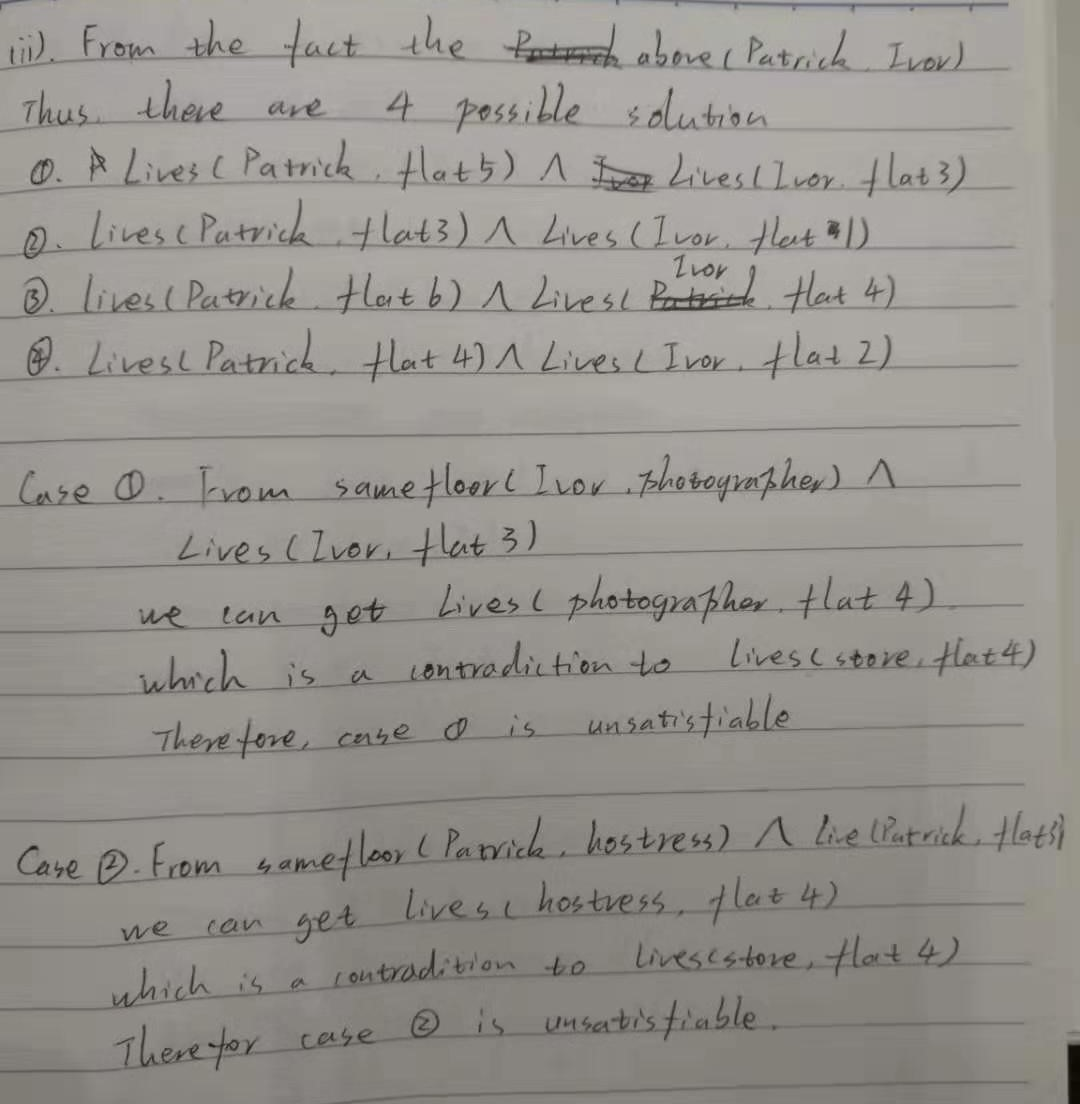 iii). From the fact the above (Patrick, Ivor)
Thus, there are 4 possible solution
①. Lives (Patrick, flat5) ∧ Lives (Ivor, flat3)
②. Lives (Patrick, flat3) ∧ Lives (Ivor, flat 1)
③. lives (Patrick, flat 6) ∧ Lives( Ivor, flat 4)
④. Lives( Patrick, flat 4) ∧ Lives ( Ivor, flat 2)
Case ①. From samefloor( Ivor, photographer) ∧
Lives (Ivor, flat 3)
we can get Lives ( photographer, flat 4)
which is a contradiction to lives( store, flat4)
Therefore, case ① is unsatisfiable
Case ②. From samefloor ( Patrick, hostress) ∧ live (Patrick, flat3)
we can get lives ( hostress, flat 4)
which is a contradition to lives(store, flat 4)
Therefor case ② is unsatisfiable.